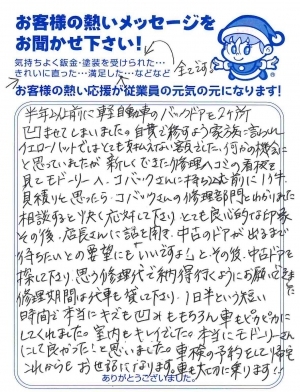 お客様の熱いメッセージを
お聞かせ下さい!
気持ちよく鈑金・塗装を受けられた…
きれいに直った…満足した…などなど
全てです!
お客様の熱い応援が従業員の元気の元になります!
半年以上前に軽自動車のバックドアを2ヶ所
凹ませてしまいました。自費で修すよう家族に言われ
イエローハットではとても払えない額でした。何かの機会に
と思っていましたが新しくできた修理へコミの看板を
見てモドーリーへ。コバックさんに持ち込む前に1ヶ所
見積りをと思ったら、コバックさんの修理部門だとわかり
相談すると快く応対して下さり とても良心的な印象
その後、店長さんに話を聞き、中古のドアが出るまで
待ちたいとの要望にも「いいですよ」と その後、中古ドアを
探して下さり、思う修理代で納得行くようにお願いできました
修理期間は代車も貸して下さり、1日半という短い
時間で本当にキズも凹みももちろん車もピカピカに
してくれました。室内もキレイでした。本当にモドーリーさん
にして良かった!と思いました。車検の予約をして帰宅
これからもお世話になります。車も大切に乗ります!!
ありがとうございました。